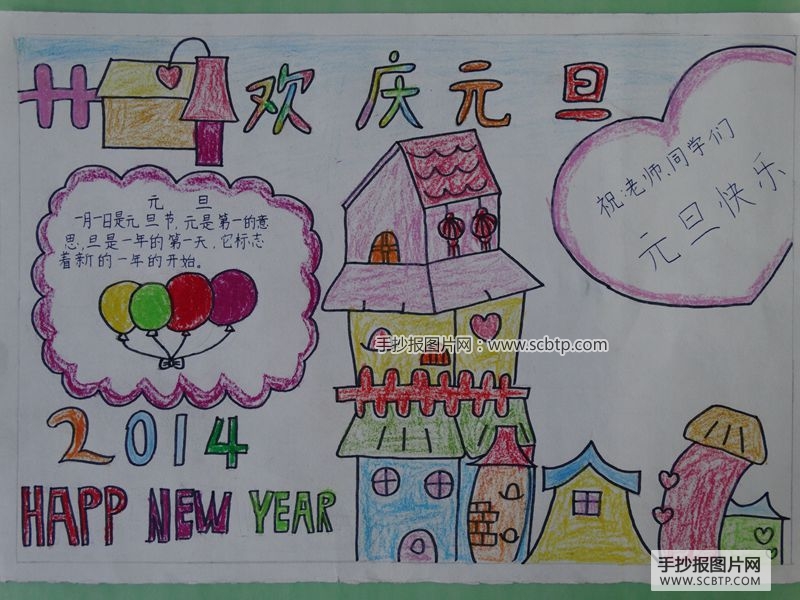 欢庆元旦
祝:老师、同学们
元旦快乐
元 旦
一月一日是元旦节,元是第一的意
思,旦是一年的第一天,它标志
着新的一年的开始。
手抄报图片网:www.scbtp.com
2014
HAPP NEW YEAR
手抄报图片网
WWW.SCBTP.COM